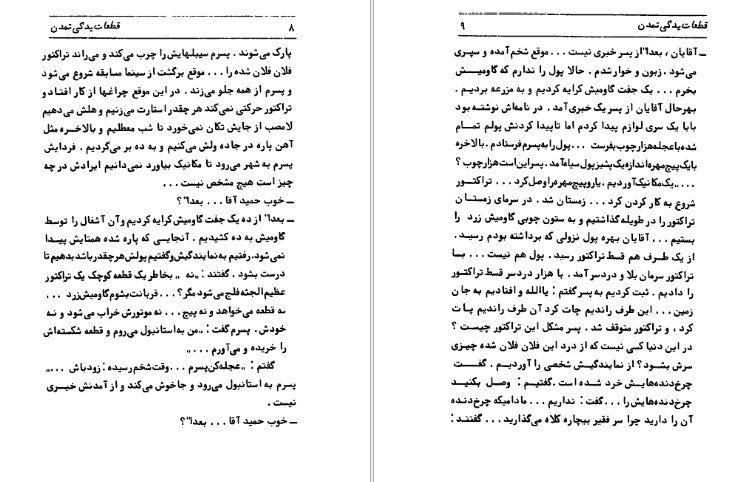 قطعات یدگی تمدن ۸
پارک می‌شوند . پسرم سیبلهایش را چرب می‌کند و می‌راند تراکتور
فلان فلان شده را . . . موقع برگشت از سینما مسابقه شروع می‌شود
و پسرم از همه جلو می‌زند . در این موقع چراغها از کار افتاد و
تراکتور حرکتی نمی‌کند هر چقدر استارت می‌زنیم و هلش می‌دهیم
لامصب از جایش تکان نمی‌خورد تا شب معطلیم و بالاخره مثل
آهن پاره در جاده ولش می‌کنیم و به ده بر می‌گردیم . فردایش
پسرم به شهر می‌رود تا مکانیک بیاورد نمی‌دانیم ایرادش در چه
چیز است هیچ مشخص نیست . . .
ــ خوب حمید آقا . . . بعدا"؟
ــ بعدا" از ده یک جفت گاومیش کرایه کردیم و آن آشغال را توسط
گاومیش به ده کشیدیم . آنجایی که پاره شده همتایش پیدا
نمی‌شود . رفتیم به نمایندگیش و گفتیم پولش هر چقدر باشد بدهیم تا
درست بشود . گفتند : ,,نه ,, بخاطر یک قطعه کوچک یک تراکتور
عظیم الجثه فلج می‌شود مگر ؟ . . . قربانت بشوم گاومیش زرد . . .
نه قطعه می‌خواهد و نه پیچ . . . نه موتورش خراب می‌شود و نه
خودش . پسرم گفت : ,,من به استانبول می‌روم و قطعه شکسته‌اش
را خریده و می‌آورم . . . ,,
گفتم : ,,عجله کن پسرم . . . وقت شخم رسیده : زود باش . . . ,,
پسرم به استانبول می‌رود و جا خوش می‌کند و از آمدنش خبری
نیست .
ــ خوب حمید آقا . . . بعدا"؟
قطعات یدگی تمدن ۹
ــ آقایان ، بعدا" از پسر خبری نیست . . . موقع شخم آمده و سپری
می‌شود . زبون و خوار شدم . حالا پول را ندارم که گاومیــش
بخرم . . . یک جفت گاومیش کرایه کردیم و به مزرعه بردیــم .
بهر حال آقایان از پسر یک خبری آمد . در نامه‌اش نوشتــه بود
بابا یک سری لوازم پیدا کردم اما تا پیدا کردنش پولم تمــام
شده با عجله هزار چوب بفرست . . . پول را به پسرم فرستادم . بالاخره
با یک پیچ مهره اندازه یک پشیز پول سیاه آمد . پسر این است هزار چوب ؟
. . . ,, یک مکانیک آوردیم . یارو پیچ مهره را وصل کرد . . . تراکتــور
شروع به کار کردن کرد . . . زمستان شد . در سرمای زمستــان
تراکتور را در طویله گذاشتیم و به ستون چوبی گاومیش زرد را
بستیم . . . آقایان بهره پول نزولی که برداشته بودم رسید .
از یک طــرف هم قسط تراکتور رسید . پول هم نیست . . . بــا
تراکتور سرمان بلا و دردسر آمد . با هزار دردسر قسط تراکتــور
را دادیم . ثبت کردیم به پسر گفتم : یاالله و افتادیم به جان
زمین . . . این طرف راندیم چات کرد آن طرف راندیم پــات
کرد ، و تراکتور متوقف شد . پسر مشکل این تراکتور چیست ؟
در این دنیا کسی نیست که از درد این فلان فلان شده چیــزی
سرش بشود ؟ از نمایندگیش شخصی را آوردیــم . گفــت
چرخ‌دنده‌هایــش خرد شــده است . گفتیــم : وصــل بکنیــد
چرخ‌دنده‌هایش را . . . گفت : نداریم . . . مادامیکه چرخ‌دنــده
آن را دارید چرا سر فقیر بیچاره کلاه می‌گذارید . . . گفتنــد :